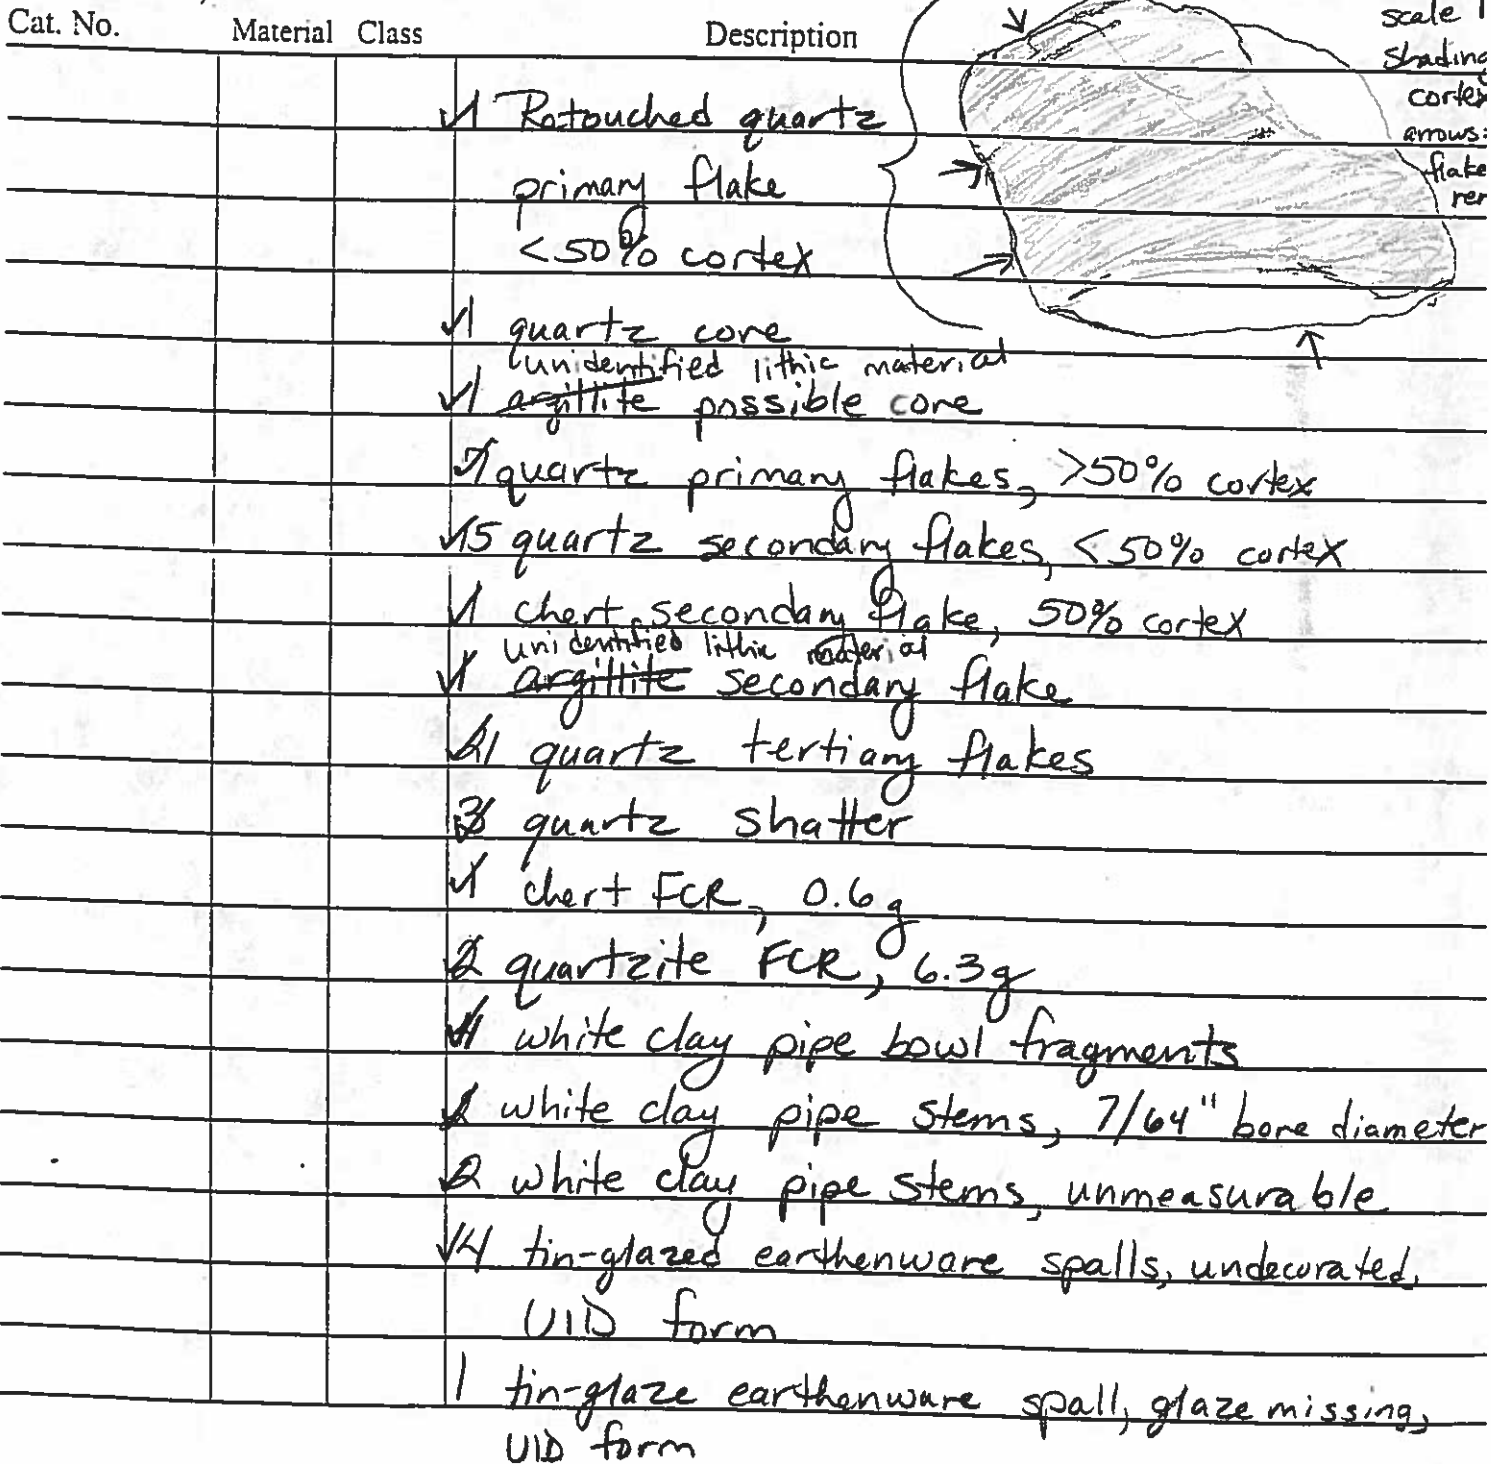 Cat. No. Material Class Description
scale 1
Shading
cortex
arrows:
flake
1 Retouched quartz
primary flake
<50% cortex
1 quartz core
unidentified lithic material
1 argillite possible core
7 quartz primary flakes, >50% cortex
15 quartz secondary flakes, <50% cortex
1 chert secondary flake, 50% cortex
unidentified lithic material
1 argillite secondary flake
21 quartz tertiary flakes
3 quartz shatter
1 chert FCR, 0.6g
2 quartzite FCR, 6.3g
white clay pipe bowl fragments
2 white clay pipe stems, 7/64" bore diameter
2 white clay pipe stems, unmeasurable
4 tin-glazed earthenware spalls, undecorated,
UID form
1 tin-glaze earthenware spall, glaze missing,
UID form